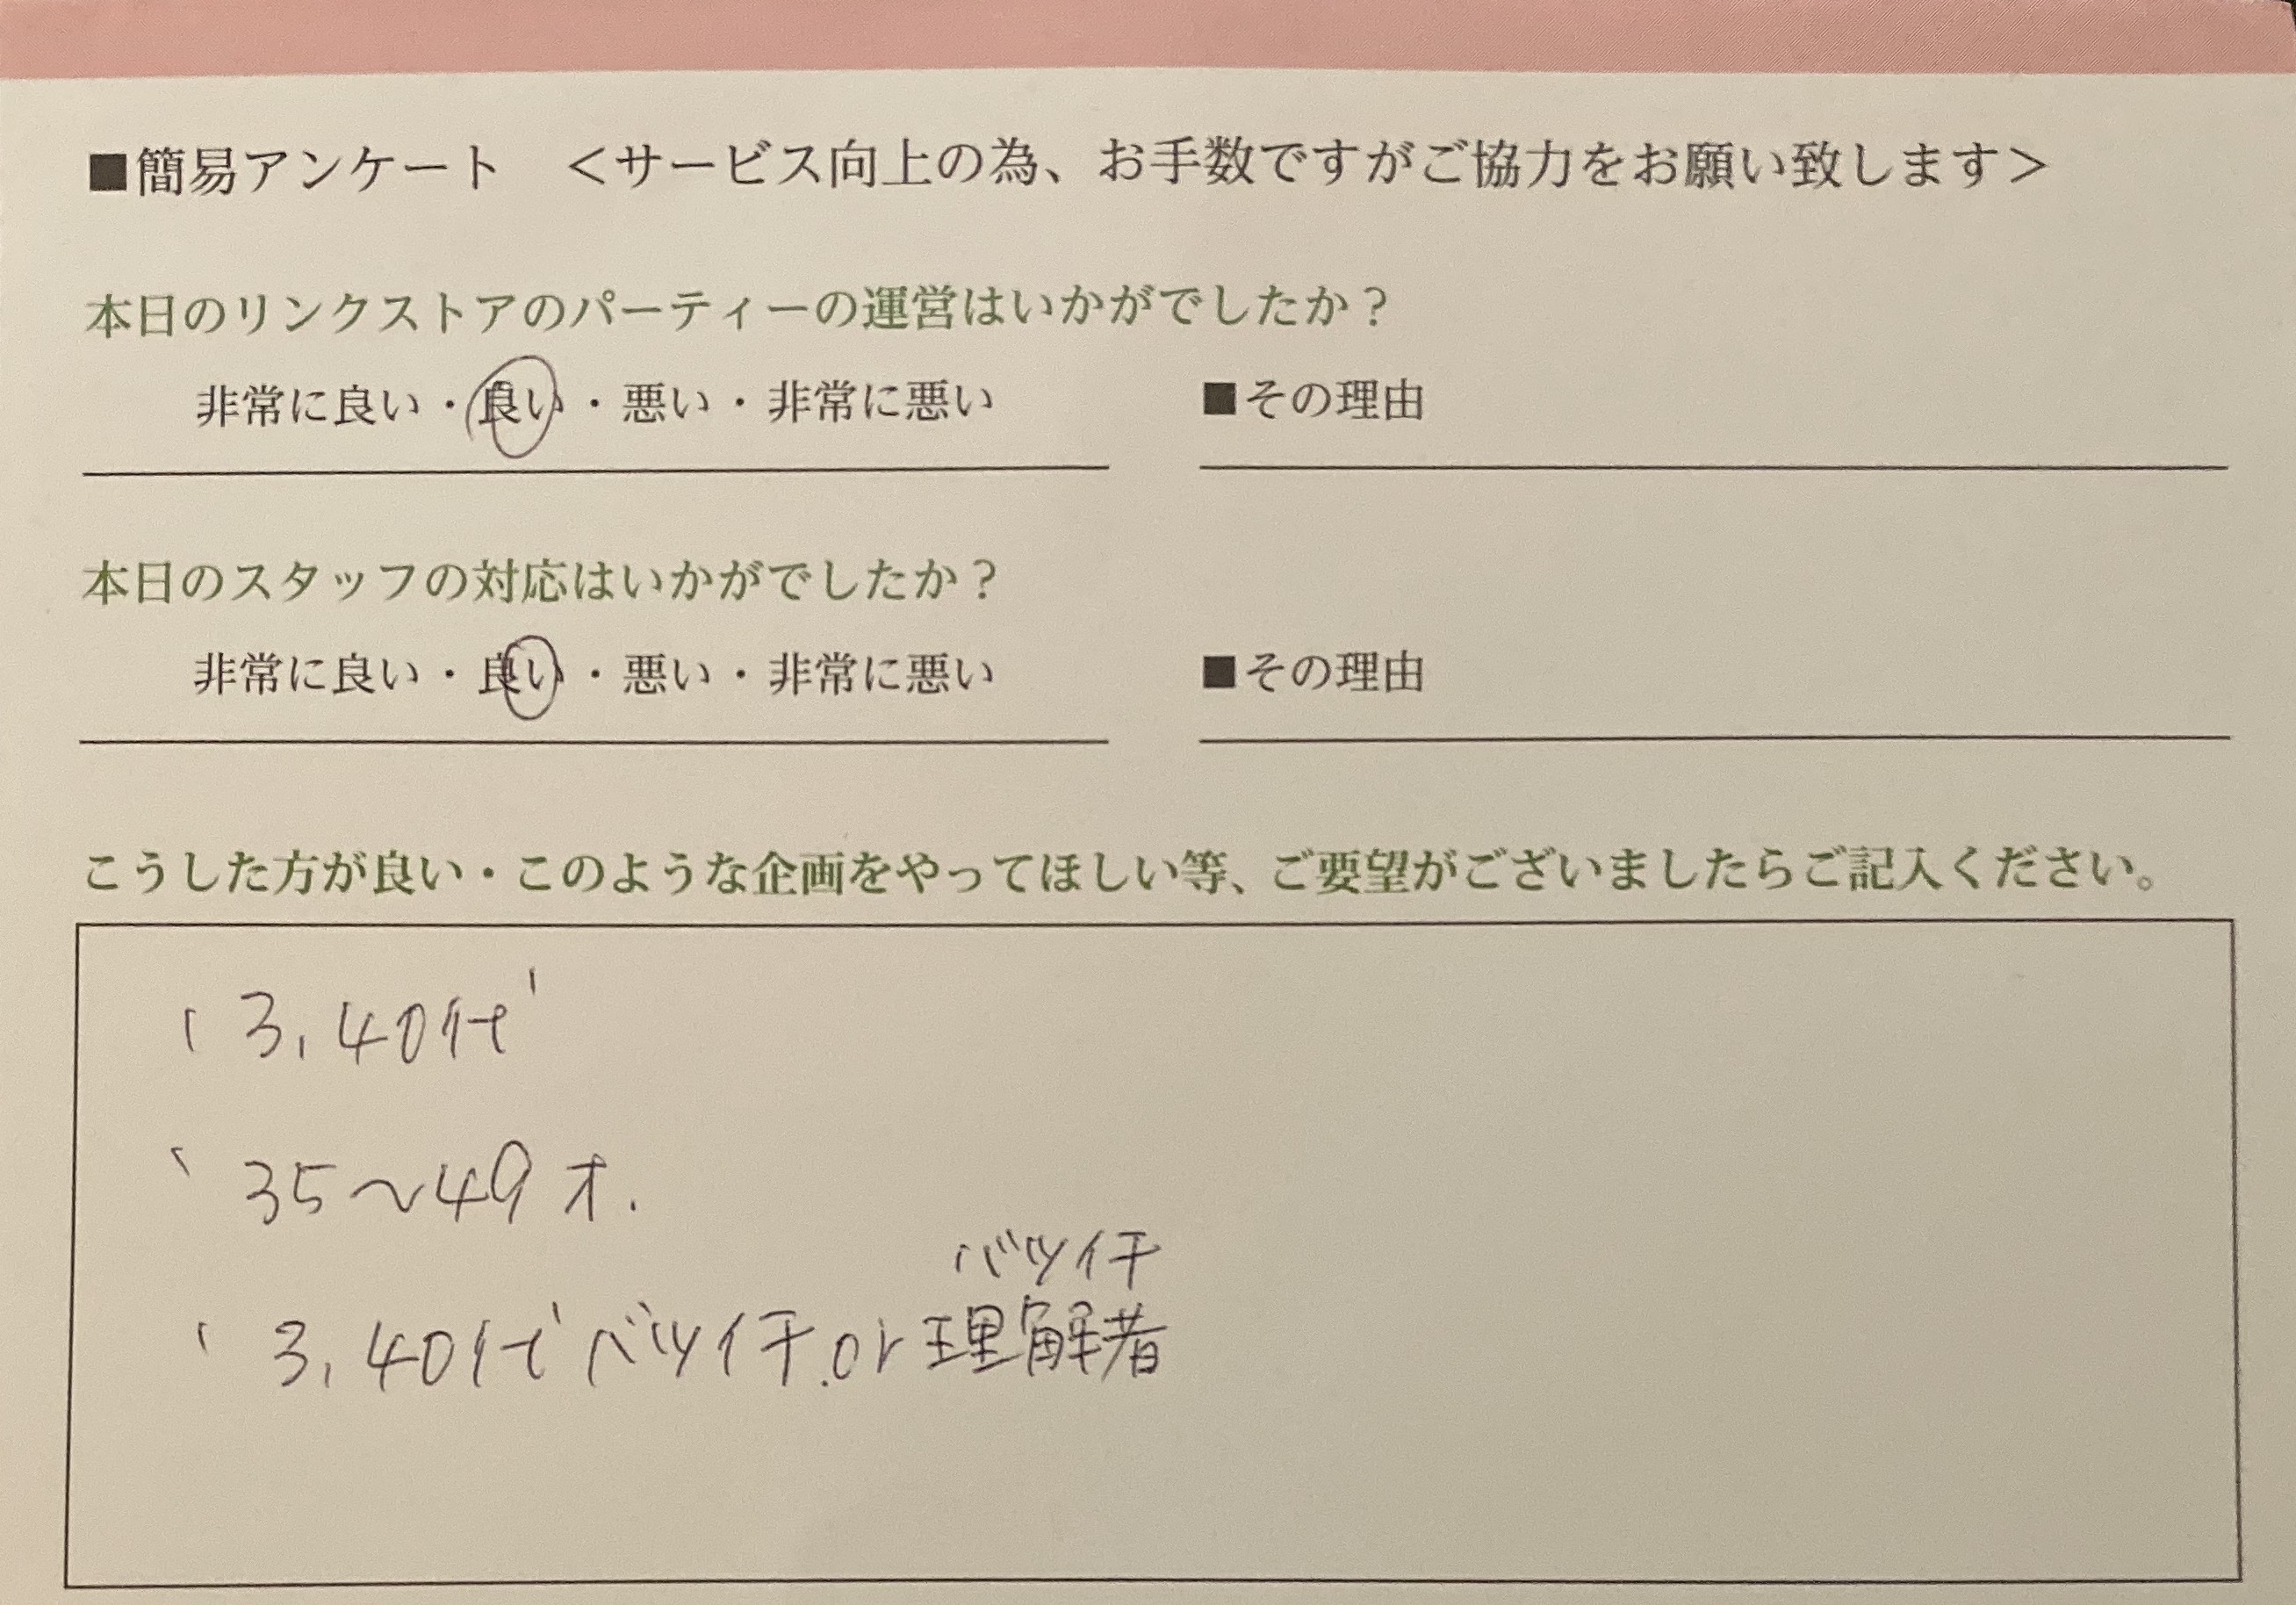 ■簡易アンケート ＜サービス向上の為、お手数ですがご協力をお願い致します＞
本日のリンクストアのパーティーの運営はいかがでしたか？
非常に良い・良い・悪い・非常に悪い ■その理由
本日のスタッフの対応はいかがでしたか？
非常に良い・良い・悪い・非常に悪い ■その理由
こうした方が良い・このような企画をやってほしい等、ご要望がございましたらご記入ください。
、3,40代
、35〜49才.
バツイチ
、3,40代バツイチ.or理解者